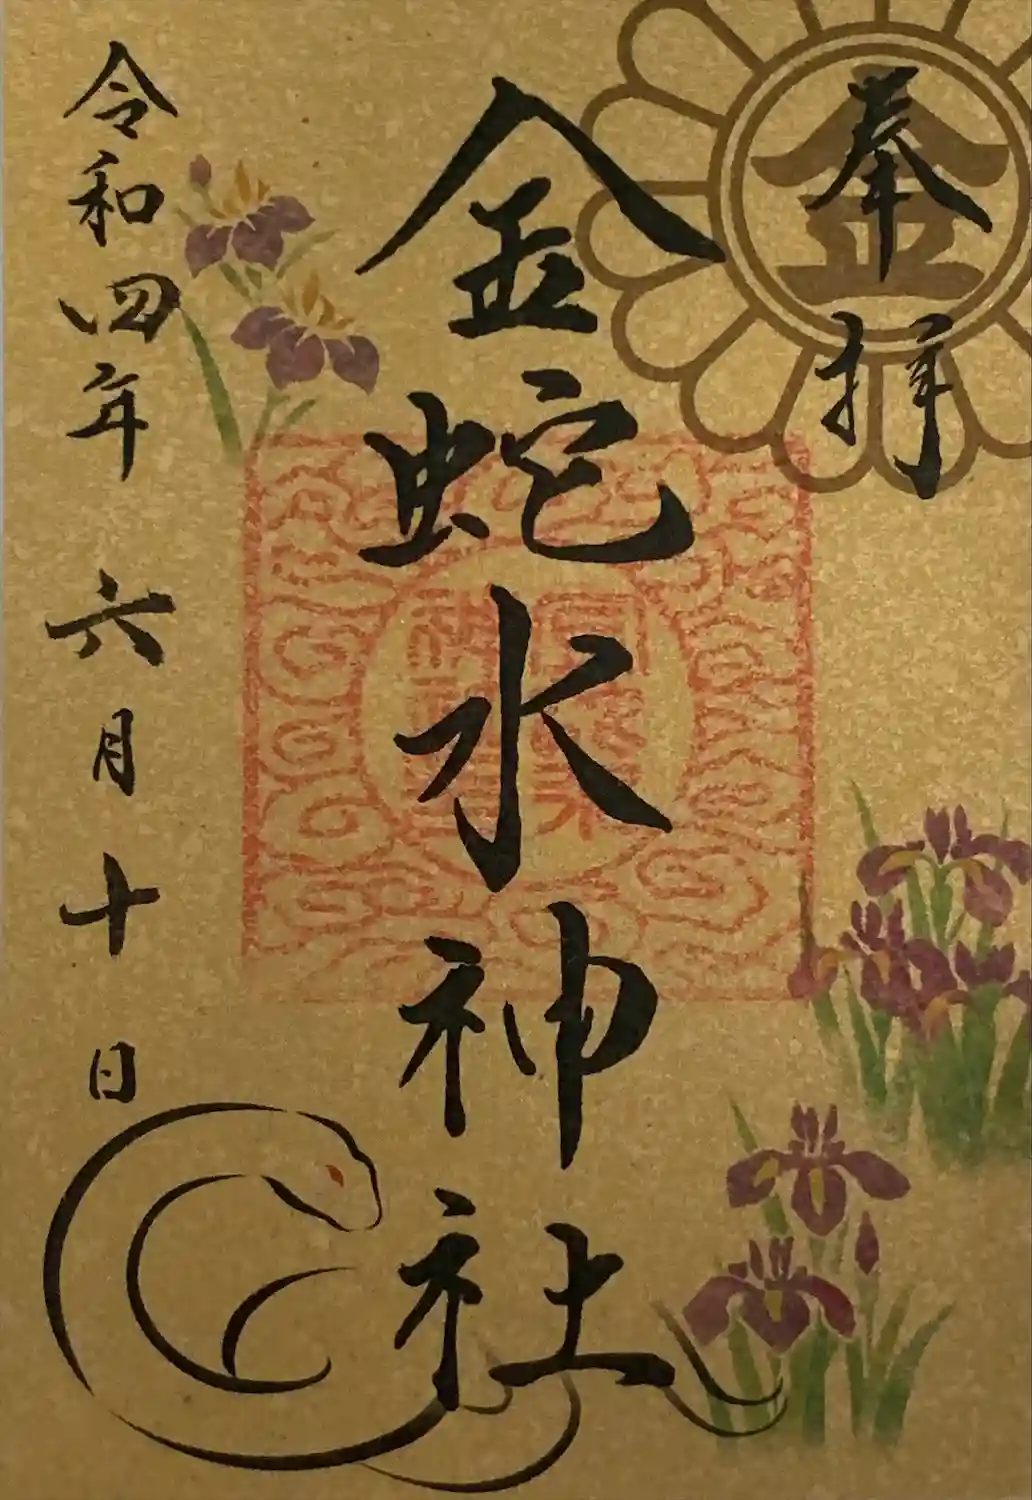 奉拝
金
金蛇水神社
令和四年六月十日